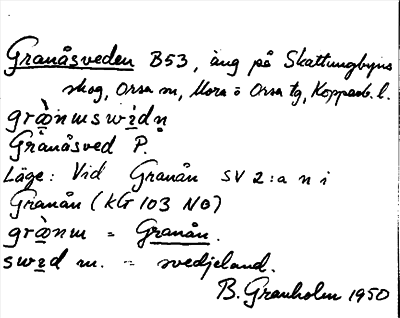 Granåsveden B53, äng på Skattungbyns
skog, Orsa sn, Mora o Orsa tg, Kopparb. l.
grànmswìdn̥
Granåsved P.
Läge: Vid Granån SV 2:a n i
Granån (KG 103 NO)
grànm = Granån.
swìd m. = svedjeland.
B. Granholm 1950